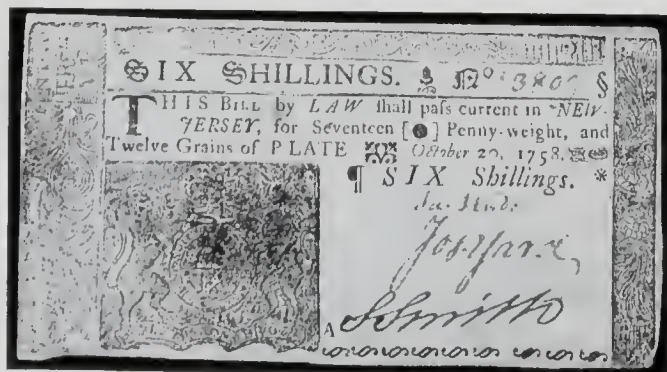 SIX SHILLINGS. No
THIS BILL by LAW ſhall paſs current in NEW-
JERSEY, for Seventeen [ ] Penny-weight, and
Twelve Grains of PLATE October 20, 1758.
¶ SIX Shillings. *
A SSmith